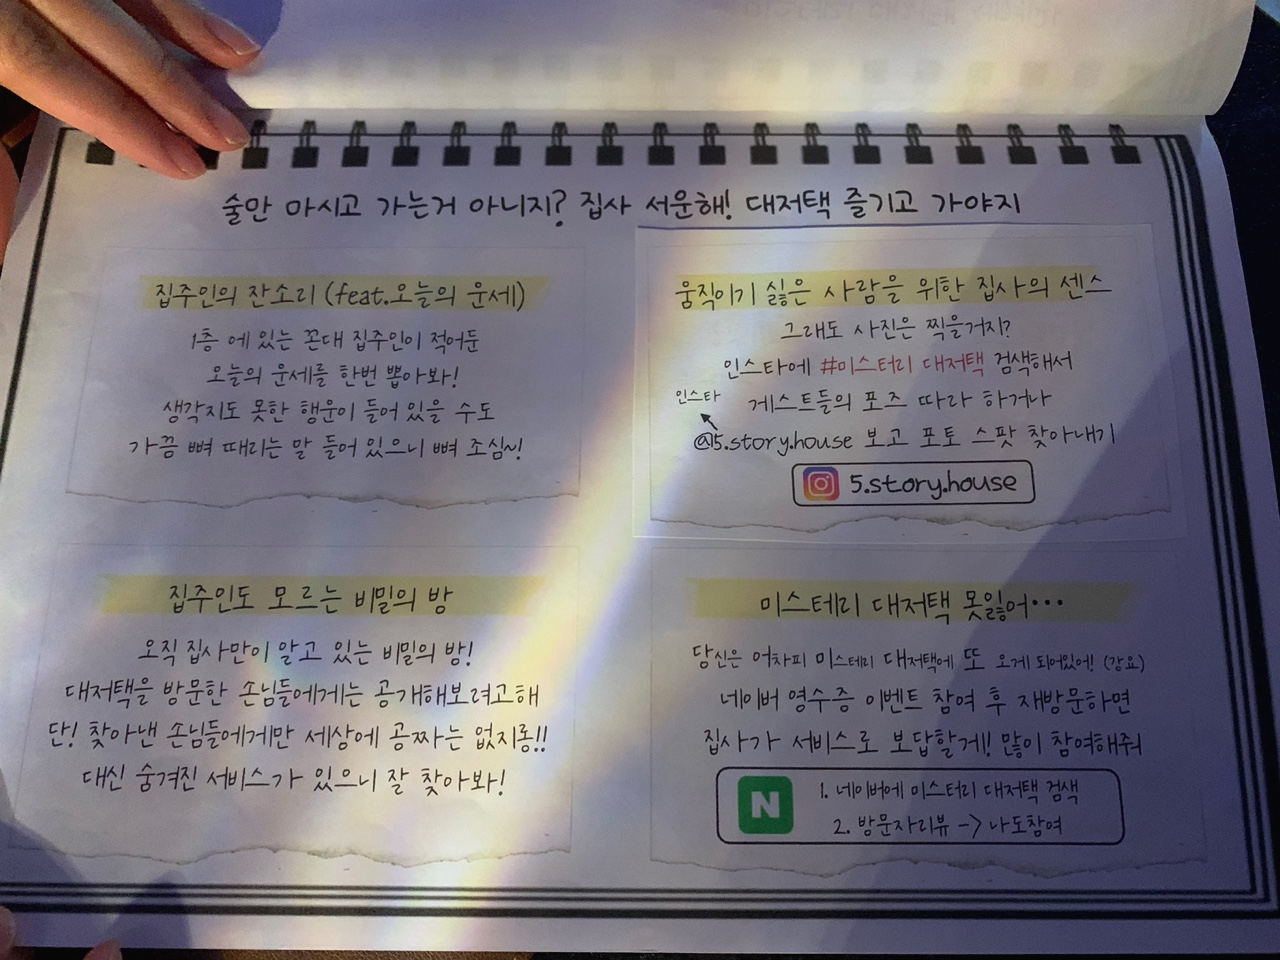 술만 마시고 가는거 아니지? 집사 서운해! 대저택 즐기고 가야지
집주인의 잔소리 (feat.오늘의 운세)
1층 에 있는 꼰대 집주인이 적어둔
오늘의 운세를 한번 뽑아봐!
생각지도 못한 행운이 들어 있을 수도
가끔 뼈 때리는 말 들어 있으니 뼈 조심~!
움직이기 싫은 사람을 위한 집사의 센스
그래도 사진은 찍을거지?
인스타에 #미스터리 대저택 검색해서
인스타 게스트들의 포즈 따라 하거나
@5.story.house 보고 포토 스팟 찾아내기
5.story.house
집주인도 모르는 비밀의 방
오직 집사만이 알고 있는 비밀의 방!
대저택을 방문한 손님들에게는 공개해보려고해
단! 찾아낸 손님들에게만 세상에 공짜는 없지롱!!
대신 숨겨진 서비스가 있으니 잘 찾아봐!
미스테리 대저택 못잃어...
당신은 어차피 미스테리 대저택에 또 오게 되어있어! (강요)
네이버 영수증 이벤트 참여 후 재방문하면
집사가 서비스로 보답할게! 많이 참여해줘
N
1. 네이버에 미스터리 대저택 검색
2. 방문자리뷰 -> 나도참여